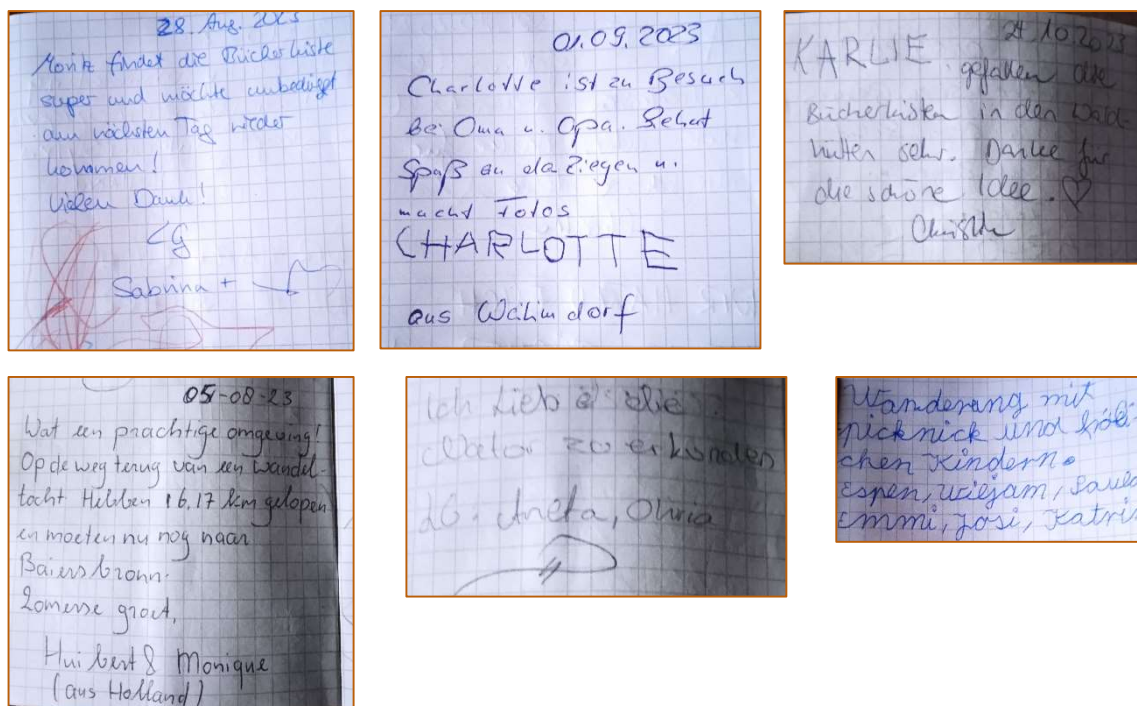 28. Aug. 2023
Moritz findet die Bücherkiste
super und möchte unbedingt
am nächsten Tag wieder
kommen!
Vielen Dank!
LG
Sabrina +
01.09.2023
Charlotte ist zu Besuch
bei Oma u. Opa. Sie hat
Spaß an den Ziegen u.
macht Fotos
CHARLOTTE
aus
KARLIE 24.10.2023
gefallen die
Bücherkisten in den Wald-
hütten sehr. Danke für
die schöne Idee. ♡
05-08-23
Wat een prachtige omgeving!
Op de weg terug van een wandel-
tocht. Hebben 16,17 km gelopen
en moeten nu nog naar
Baiersbronn.
Zomerse groet,
Huibert & Monique
(aus Holland)
Ich Liebe die
Natur zu erkunden
LG. Aneta, Olivia
Wanderung mit
picknick und fröhli-
chen Kindern.
Espen, Wiljam,
Emmi, Josi, Katrin